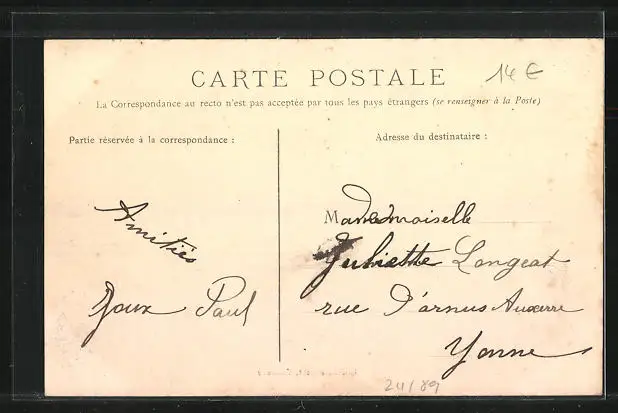 CARTE POSTALE
14 €
La Correspondance au recto n'est pas acceptée par tous les pays étrangers (se renseigner à la Poste)
Partie réservée à la correspondance :
Amitiés
Paul
Adresse du destinataire :
Mademoiselle
Juliette Longeat
rue D'arnus Auxerre
Yonne
24/89